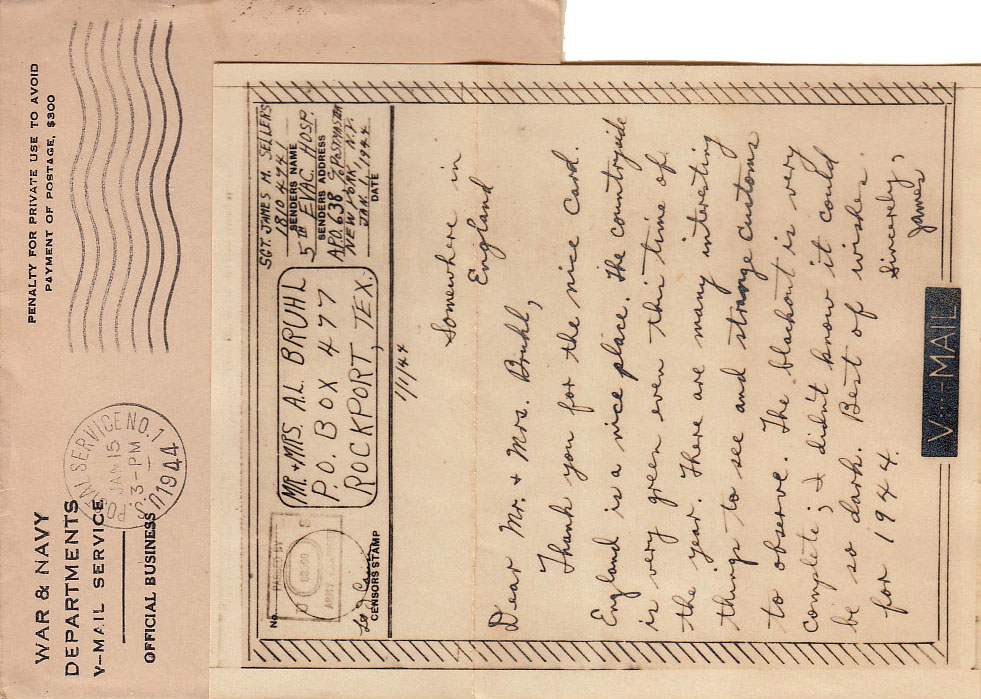 WAR & NAVY
DEPARTMENTS
V-MAIL SERVICE
OFFICIAL BUSINESS
SERVICE NO. 1
JAN 15
3-PM
1944
PENALTY FOR PRIVATE USE TO AVOID
PAYMENT OF POSTAGE, $300
No.
PASSED BY
ARMY EXAMINER
CENSORS STAMP
MR. + MRS. A.L. BRUHL
P.O. BOX 477
ROCKPORT, TEX.
SGT. JAMES M. SELLERS
SENDERS NAME
5TH EVAC. HOSP.
SENDERS ADDRESS
APO. 638 c/o POSTMASTER
NEW YORK, N.Y.
JAN. 1, 1944
DATE
1/1/44
Somewhere in
England
Dear Mr. + Mrs. Bruhl,
Thank you for the nice card.
England is a nice place. The countryside
is very green even this time of
the year. There are many interesting
things to see and strange customs
to observe. The blackout is very
complete; I didn't know it could
be so dark. Best of wishes
for 1944.
Sincerely,
James
V---MAIL